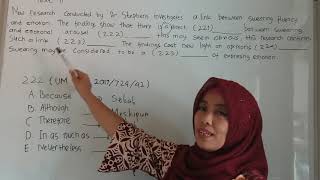 New research conducted by Dr Stephens investigates a link between swearing fluency
and emotion. The finding show that there is direct (221) between swearing
and emotional arousal (222) this may seem obvious, this research confirms
such a link (223) The findings cast new light on opinions (224)
Swearing may considered to be a (225) of expressing emotion.
222 (UM 2017/724/42)
A. Because Sebab
B. Although Meskipun
C. Therefore
D. In as much as
E. Nevertheless